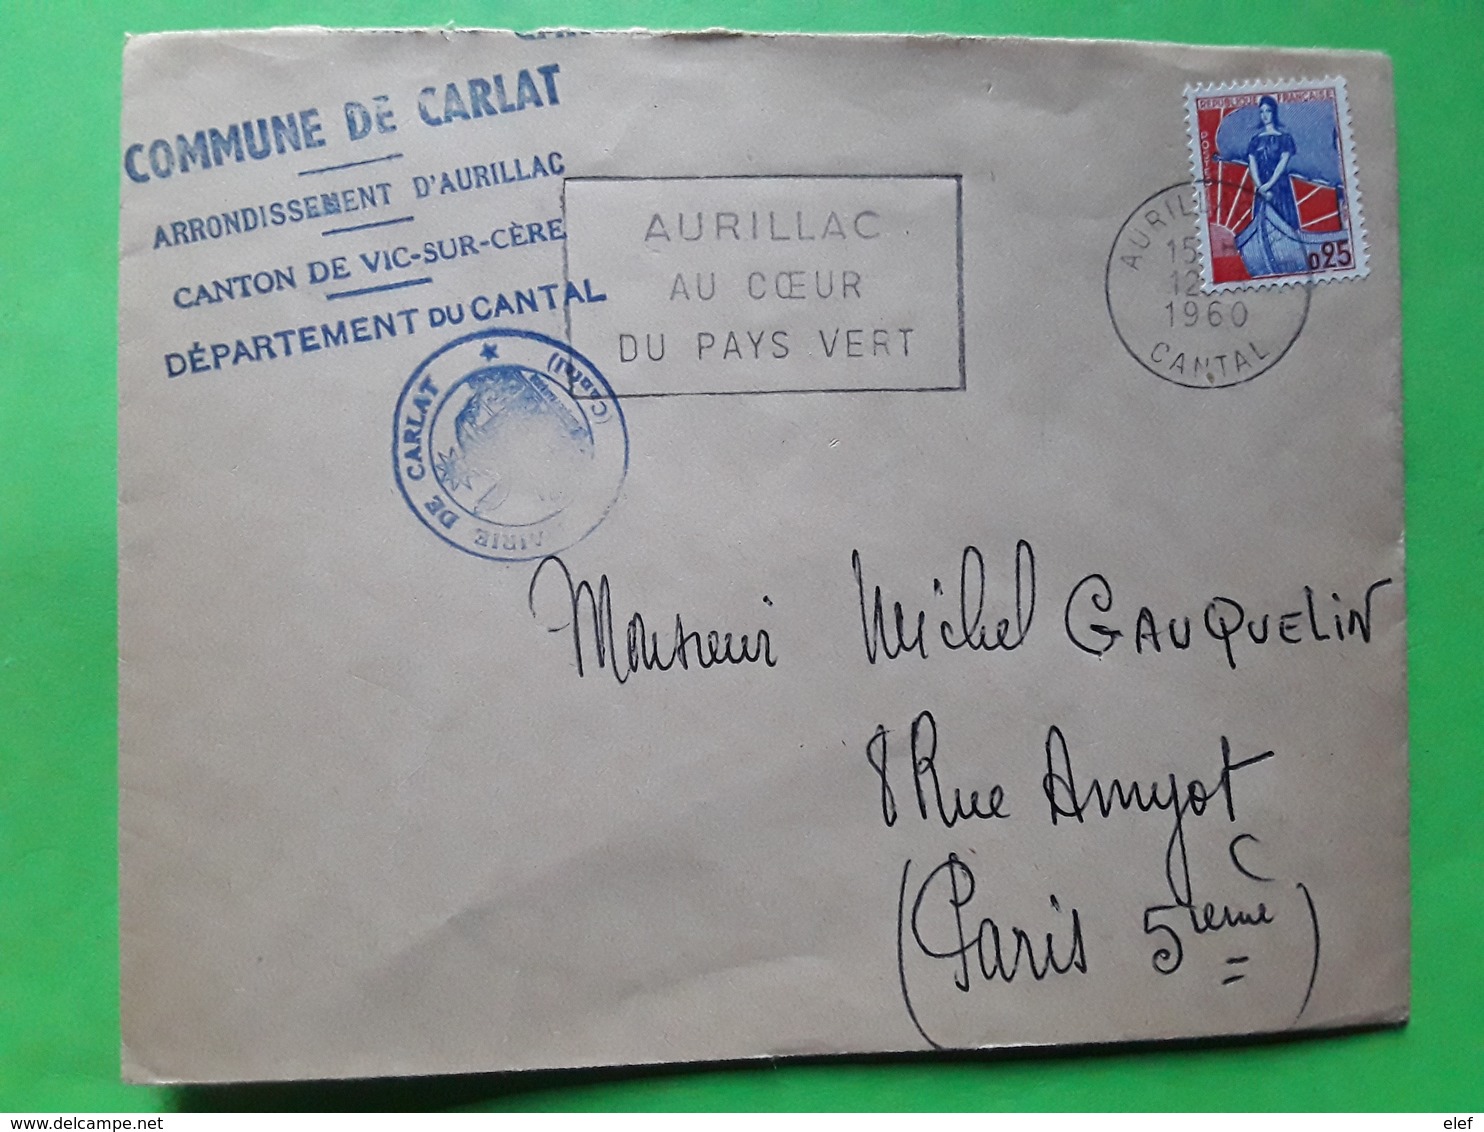 COMMUNE DE CARLAT
ARRONDISSEMENT D'AURILLAC
CANTON DE VIC-SUR-CÈRE
DÉPARTEMENT DU CANTAL
AIRIE DE CARLAT ★ (Cantal)
AURILLAC
AU CŒUR
DU PAYS VERT
RÉPUBLIQUE FRANÇAISE
POSTES
0,25
AURIL
15 H
12
1960
CANTAL
Monsieur Michel GAUQUELIN
8 Rue Amyot
(Paris 5ieme)
elef